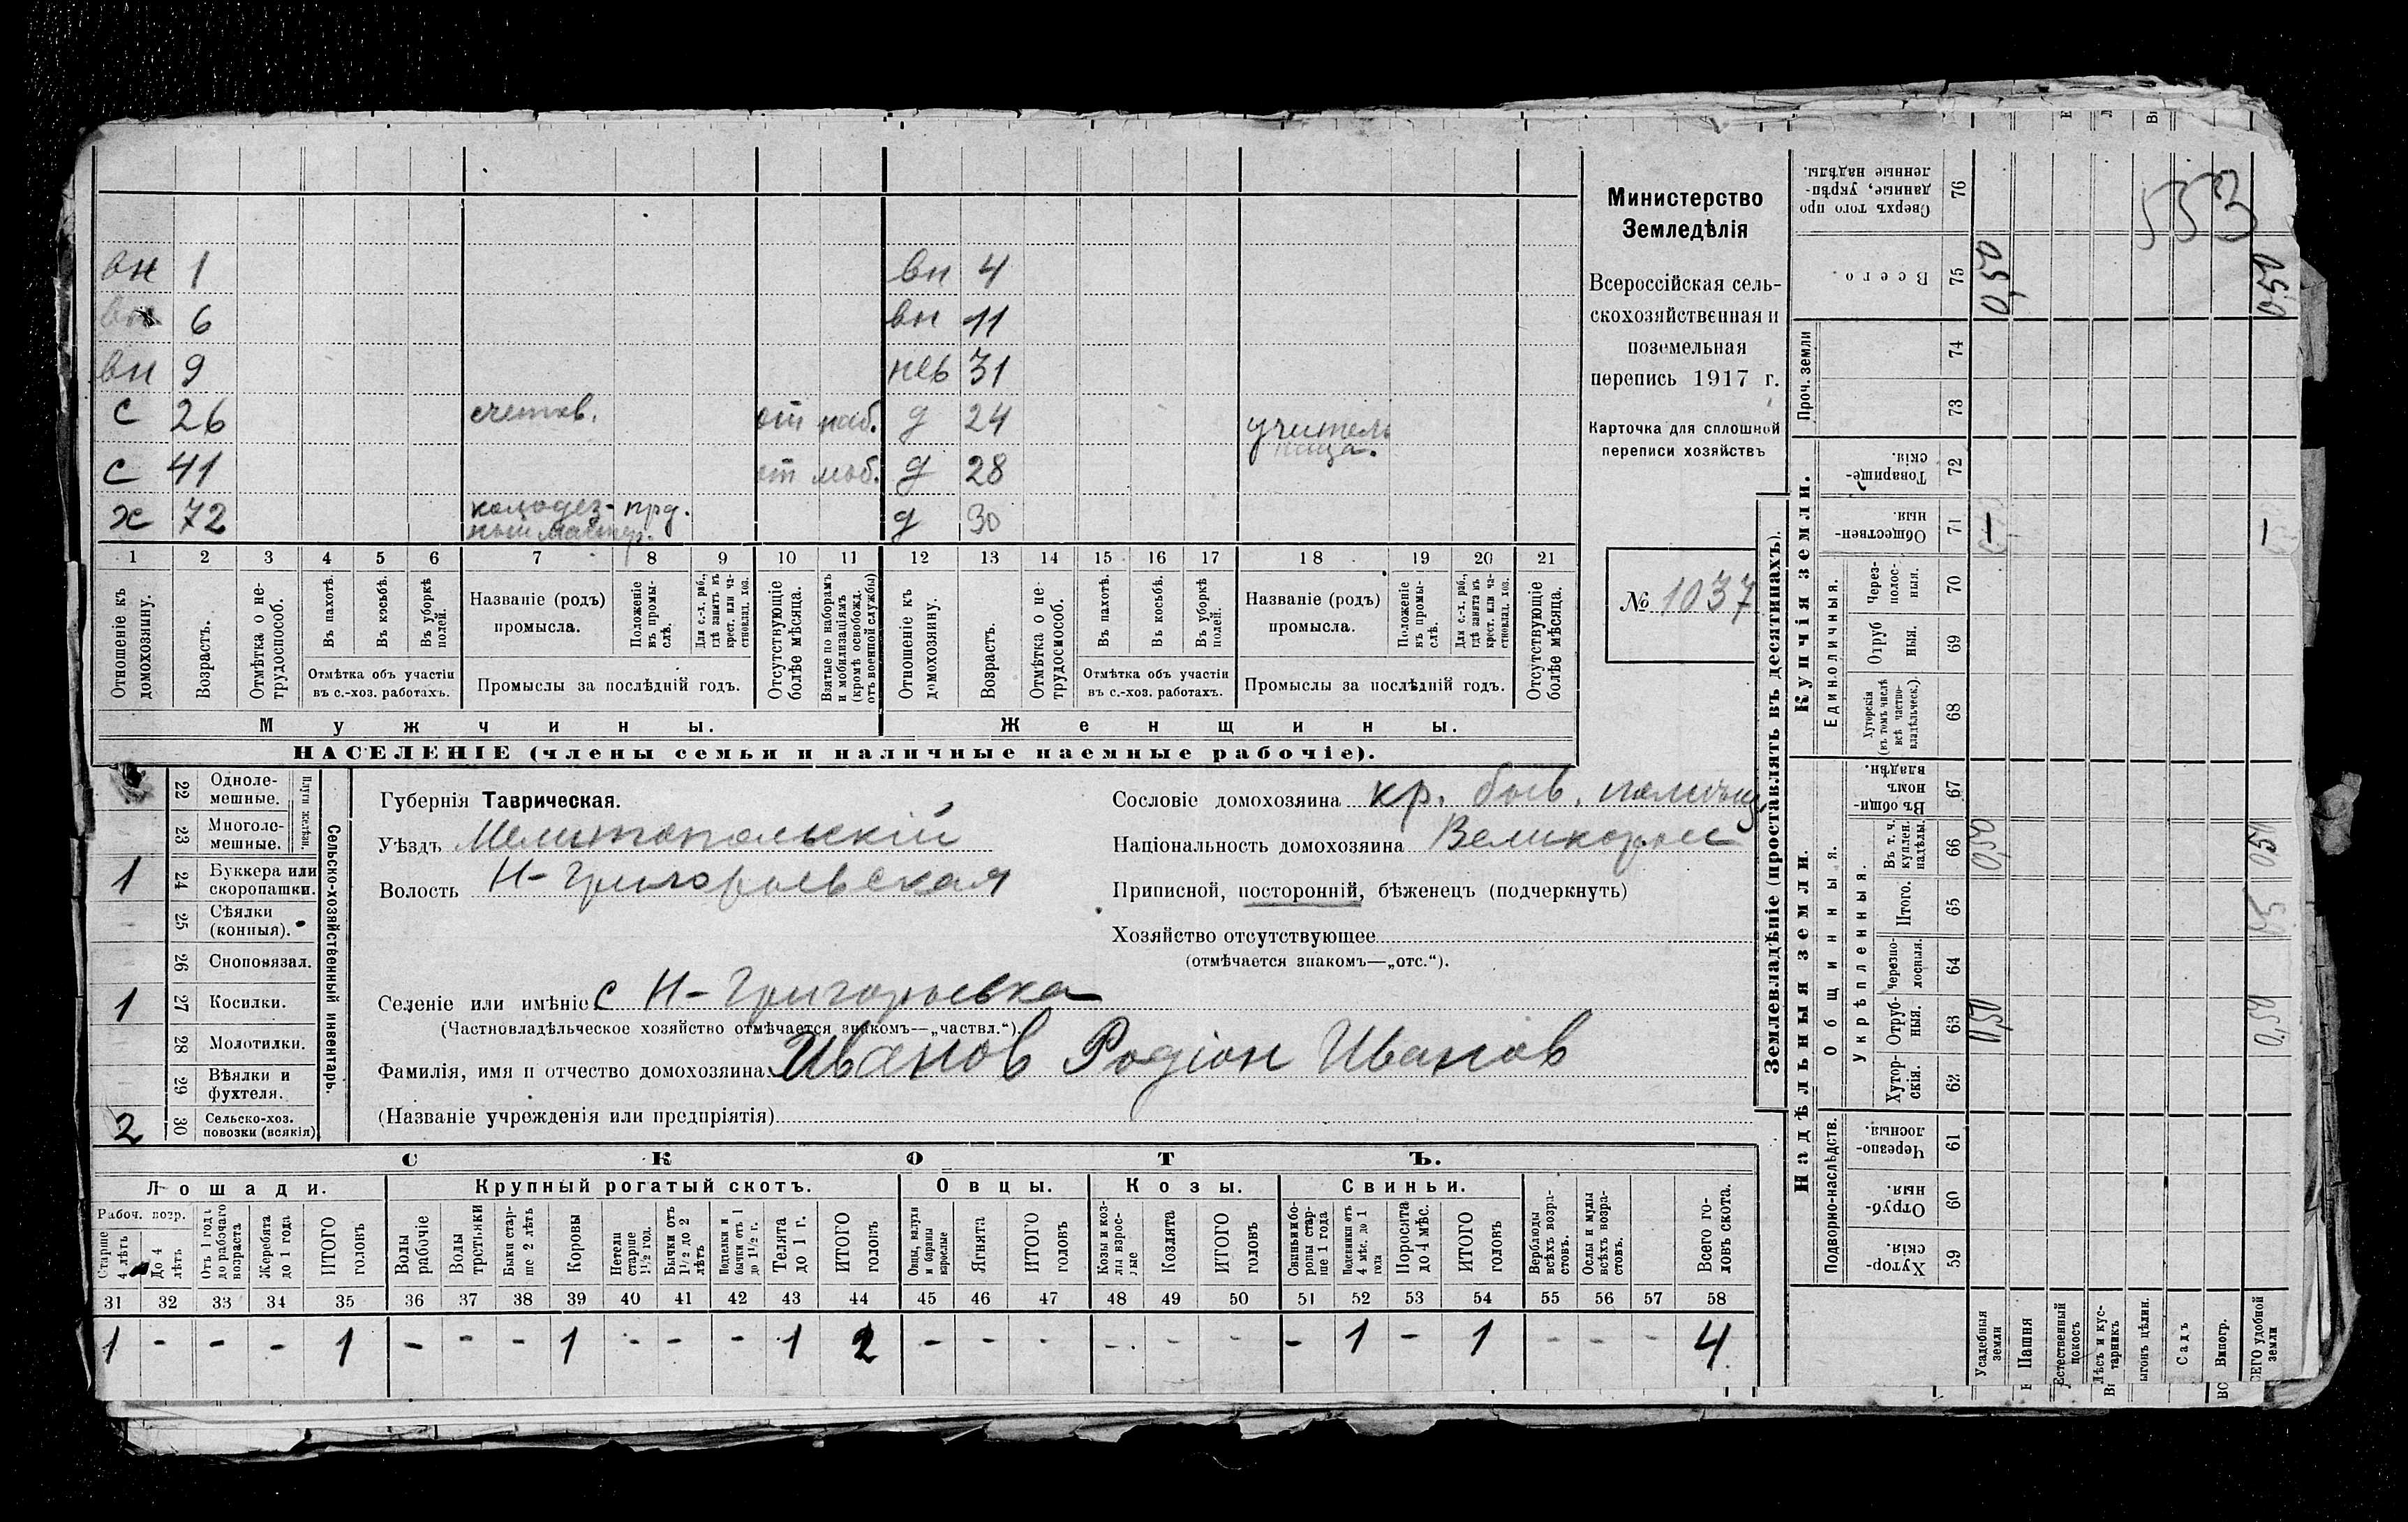 вн 1 вн 4
вн 6 вн 11
вн 9 нев 31
с 26 счетов. от моб. д 24 учитель
ница.
с 41 от моб. д 28
х 72 колодез- прд. д 30
ный мастер.
1 2 3 4 5 6 7 8 9 10 11 12 13 14 15 16 17 18 19 20 21
Отношеніе къ домохозяину.
Возрастъ.
Отмѣтка о не-трудоспособ.
Въ пахотѣ.
Въ косьбѣ.
Въ уборкѣ полей.
Отмѣтка объ участіи
въ с.-хоз. работахъ.
Названіе (родъ)
промысла.
Положеніе въ промы-слѣ.
Для с.-х. раб., гдѣ занятъ въ крест. или ча-стновлад. хоз.
Промыслы за послѣдній годъ.
Отсутствующіе болѣе мѣсяца.
Взятые по наборамъ и мобилизаціямъ (кромѣ освобожд. отъ военной службы)
Отношеніе къ домохозяину.
Возрастъ.
Отмѣтка о не-трудоспособ.
Въ пахотѣ.
Въ косьбѣ.
Въ уборкѣ полей.
Отмѣтка объ участіи
въ с.-хоз. работахъ.
Названіе (родъ)
промысла.
Положеніе въ промы-слѣ.
Для с.-х. раб., гдѣ занята въ крест. или ча-стновлад. хоз.
Промыслы за послѣдній годъ.
Отсутствующіе болѣе мѣсяца.
Мужчины. Женщины.
НАСЕЛЕНІЕ (члены семьи и наличные наемные рабочіе).
Министерство
Земледѣлія
Всероссійская сель-
скохозяйственная и
поземельная
перепись 1917 г.
Карточка для сплошной
переписи хозяйствъ
№ 1037
22 Одноле-
мешные.
23 Многоле-
мешные.
Плуги желѣзн.
1 24 Буккера или
скоропашки.
25 Сѣялки
(конныя).
26 Сноповязал.
1 27 Косилки.
28 Молотилки.
29 Вѣялки и
фухтеля.
2 30 Сельско-хоз.
повозки (всякія)
Сельско-хозяйственный инвентарь.
Губернія Таврическая.
Уѣздъ Мелитопольскій
Волость Н-Григорьевская
Селеніе или имѣніе с Н-Григорьевка
(Частновладѣльческое хозяйство отмѣчается знакомъ—„частвл.“).
Фамилія, имя и отчество домохозяина Иванов Родіон Иванов
(Названіе учрежденія или предпріятія)
Сословіе домохозяина кр. быв. помѣщ.
Національность домохозяина Великоросс
Приписной, посторонній, бѣженецъ (подчеркнуть)
Хозяйство отсутствующее
(отмѣчается знакомъ—„отс.“).
СКОТЪ.
Лошади. Крупный рогатый скотъ. Овцы. Козы. Свиньи.
Рабоч. возр.
Старше 4 лѣтъ
До 4 лѣтъ
Отъ 1 года до рабочаго возраста
Жеребята до 1 года
ИТОГО головъ
Волы рабочіе
Волы третьяки
Быки стар-ше 2 лѣтъ
Коровы
Нетели старше 1½ год.
Бычки отъ 1½ до 2 лѣтъ
Подтелки и бычки отъ 1 до 1½ г.
Телята до 1 г.
ИТОГО головъ
Овцы, валухи и бараны взрослые
Ягнята
ИТОГО головъ
Козы и коз-лы взрос-лые
Козлята
ИТОГО головъ
Свиньи и бо-ровы стар-ше 1 года
Подсвинки отъ 4 мѣс. до 1 года
Поросята до 4 мѣс.
ИТОГО головъ
Верблюды всѣхъ возра-стовъ.
Ослы и мулы всѣхъ возра-стовъ.
Всего го-ловъ скота.
31 32 33 34 35 36 37 38 39 40 41 42 43 44 45 46 47 48 49 50 51 52 53 54 55 56 57 58
1 - - - 1 - - - 1 - - - 1 2 - - - - - - - 1 - 1 - - - 4
Землевладѣніе (проставлять въ десятинахъ).
Надѣльныя земли. Купчія земли.
Проч. земли
Подворно-наслѣдств.
Общинныя.
Укрѣпленныя.
Единоличныя.
76 Сверхъ того про-данные, укрѣп-ленные надѣлы.
75 Всего.
74
73
72 Товарище-скія.
71 Обществен-ныя.
70 Через-полос-ныя.
69 Отруб-ныя.
68 Хуторскія (въ томъ числѣ всѣ частно-владѣльческ.).
67 Въ общин-номъ владѣн.
66 Въ т. ч. куплен. надѣлы.
65 Итого.
64 Черезпо-лосныя.
63 Отруб-ныя.
62 Хутор-скія.
61 Черезпо-лосныя.
60 Отруб-ныя.
59 Хутор-скія.
Усадебныя земли
Пашня
Естественный покосъ
Лѣсъ и кус-тарникъ
Выгонъ цѣлин.
Садъ
Виногр.
ВСЕГО удобной земли
553
0,50
0,50
0,50
0,50
0,50